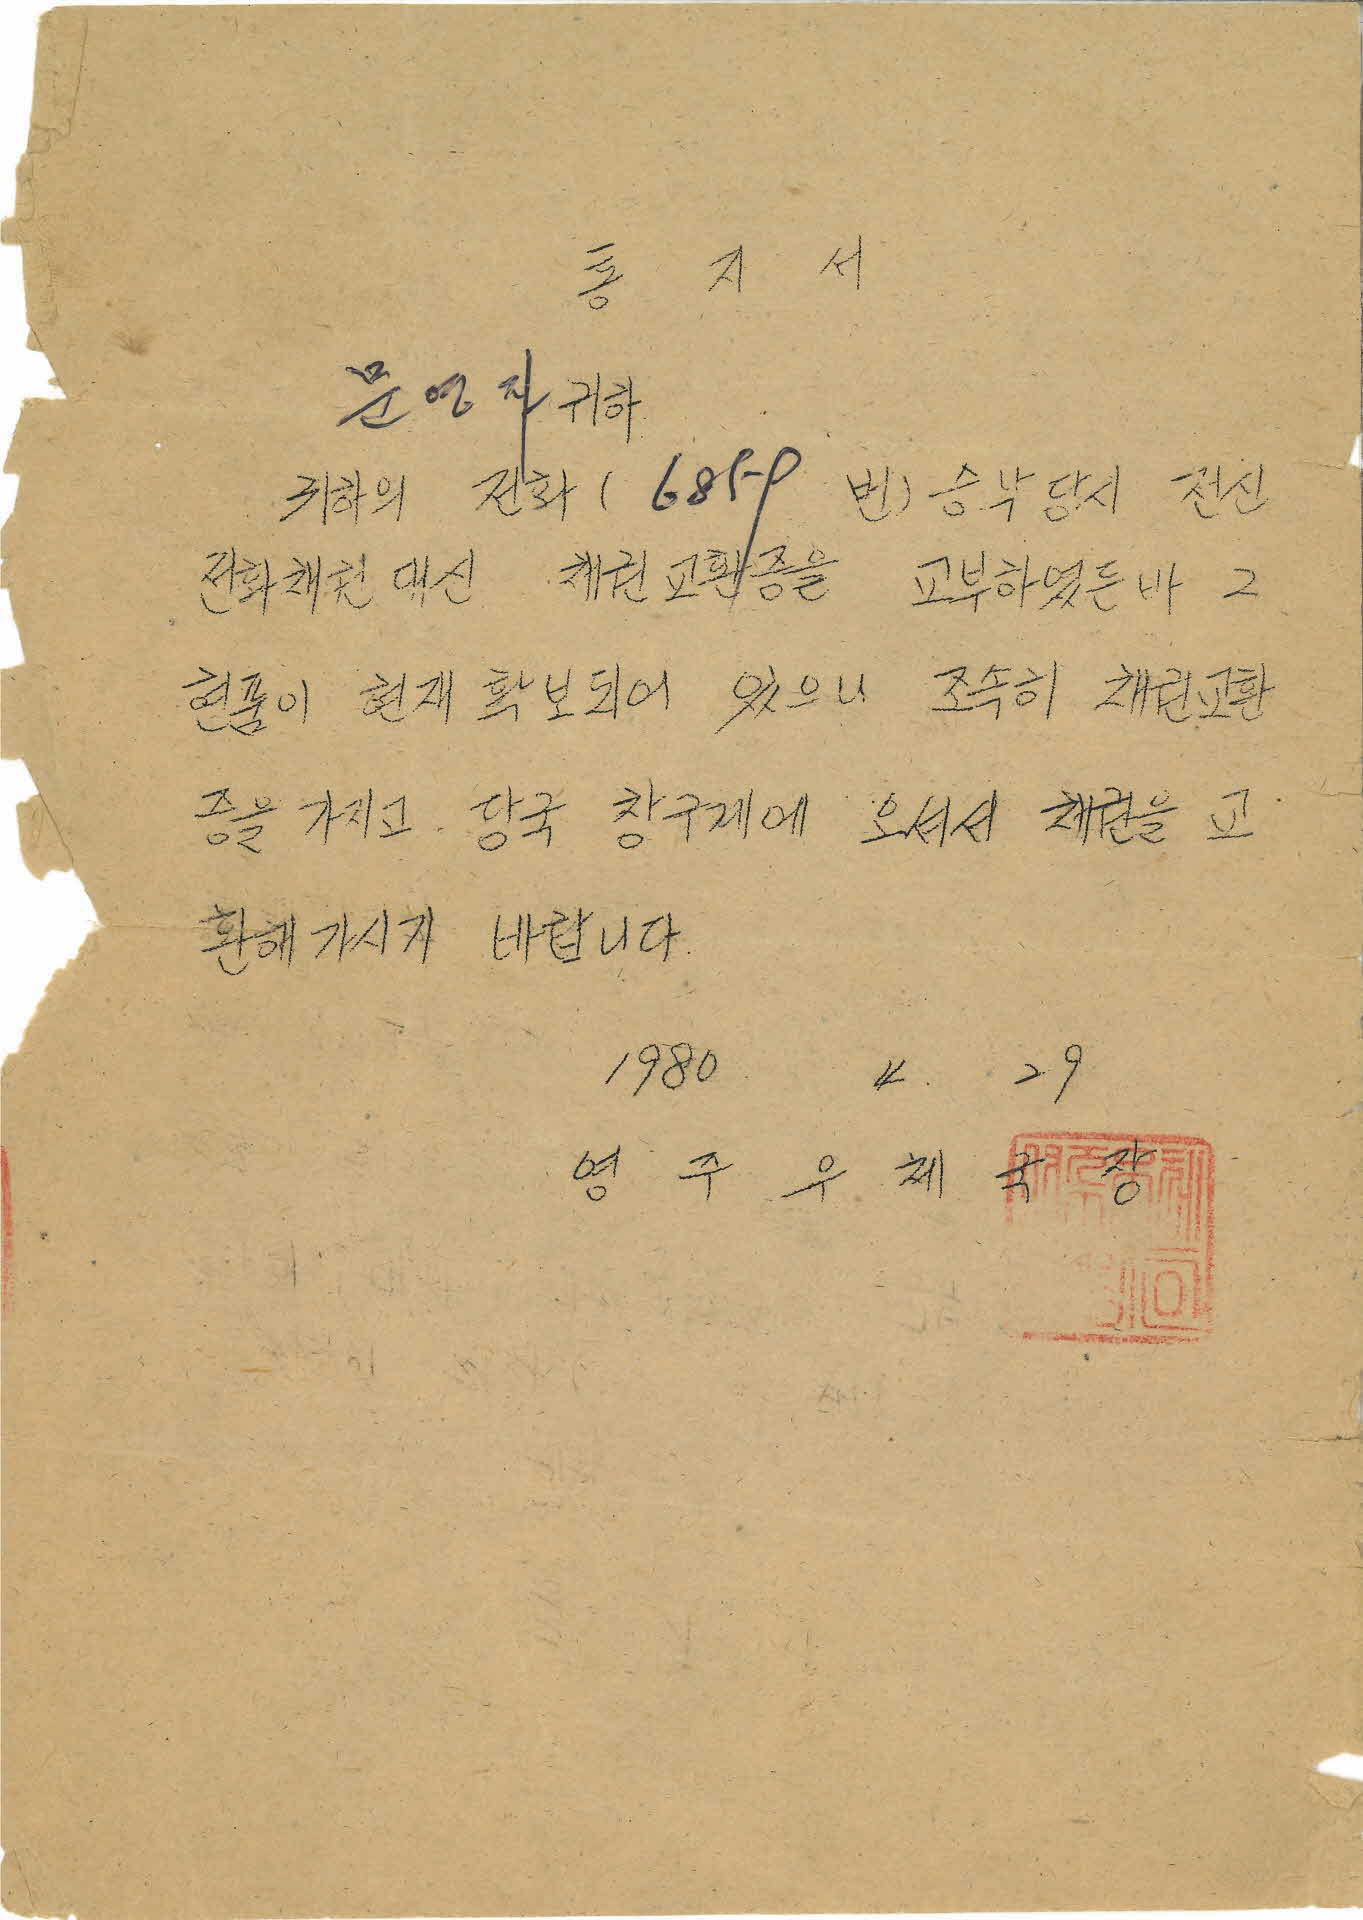 통 지 서
문영자 귀하
귀하의 전화 ( 6859 번) 승낙당시 전신
전화채권대신 채권교환증을 교부하였든바 그
현품이 현재확보되어 있으니 조속히 채권교환
증을 가지고 당국 창구계에 오셔서 채권을 교
환해가시기 바랍니다.
1980 4. 29
영 주 우 체 국 장